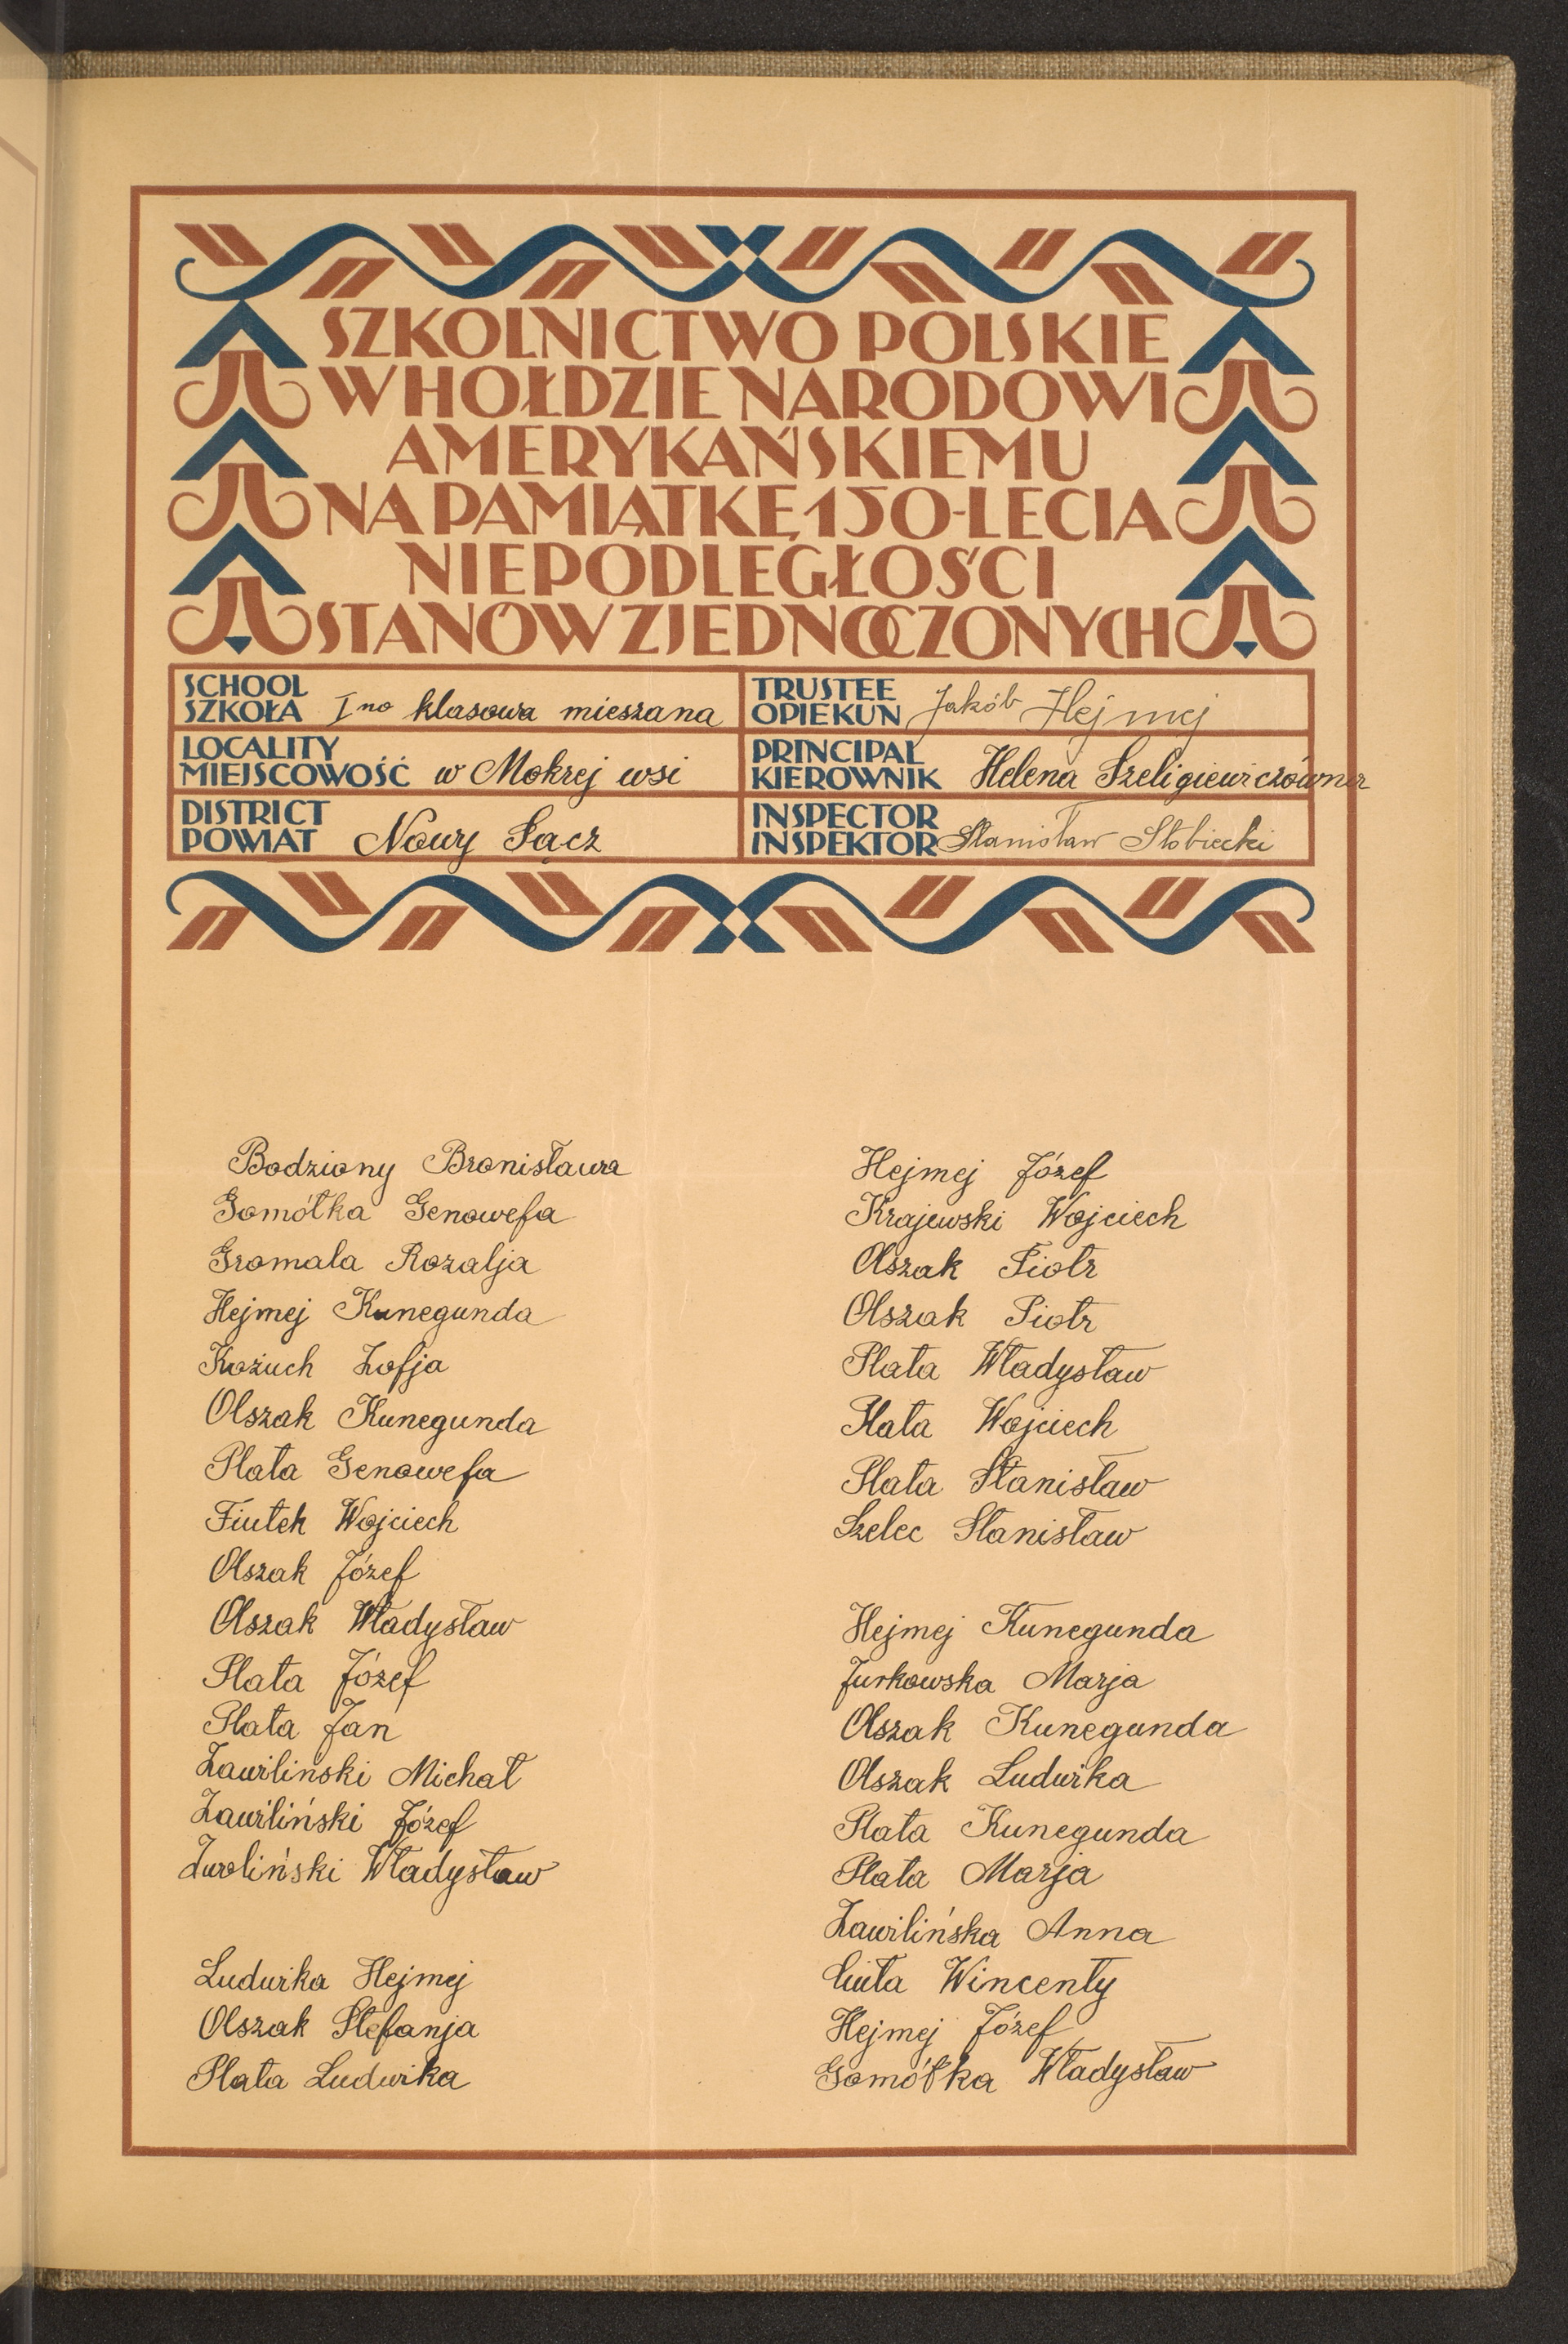 SZKOLNICTWO POLSKIE
W HOŁDZIE NARODOWI
AMERYKAŃSKIEMU
NA PAMIĄTKĘ 150-LECIA
NIEPODLEGŁOŚCI
STANÓW ZJEDNOCZONYCH
SCHOOL
SZKOŁA I no klasowa mieszana
TRUSTEE
OPIEKUN Jakób Hejmej
LOCALITY
MIEJSCOWOŚĆ w Mokrej wsi
PRINCIPAL
KIEROWNIK Helena Szeligiewiczówna
DISTRICT
POWIAT Nowy Sącz
INSPECTOR
INSPEKTOR Stanisław Słobiecki
Bodziony Bronisława
Gomółka Genowefa
Gromala Rozalja
Hejmej Kunegunda
Kożuch Zofja
Olszak Kunegunda
Plata Genowefa
Fiutek Wojciech
Olszak Józef
Olszak Władysław
Plata Józef
Plata Jan
Zawilinski Michał
Zawiliński Józef
Zwoliński Władysław
Ludwika Hejmej
Olszak Stefanja
Plata Ludwika
Hejmej Józef
Krajewski Wojciech
Olszak Piotr
Olszak Piotr
Plata Władysław
Plata Wojciech
Plata Stanisław
Szelec Stanisław
Hejmej Kunegunda
Jurkowska Marja
Olszak Kunegunda
Olszak Ludwika
Plata Kunegunda
Plata Marja
Zawilińska Anna
Wincenty
Hejmej Józef
Gomółka Władysław